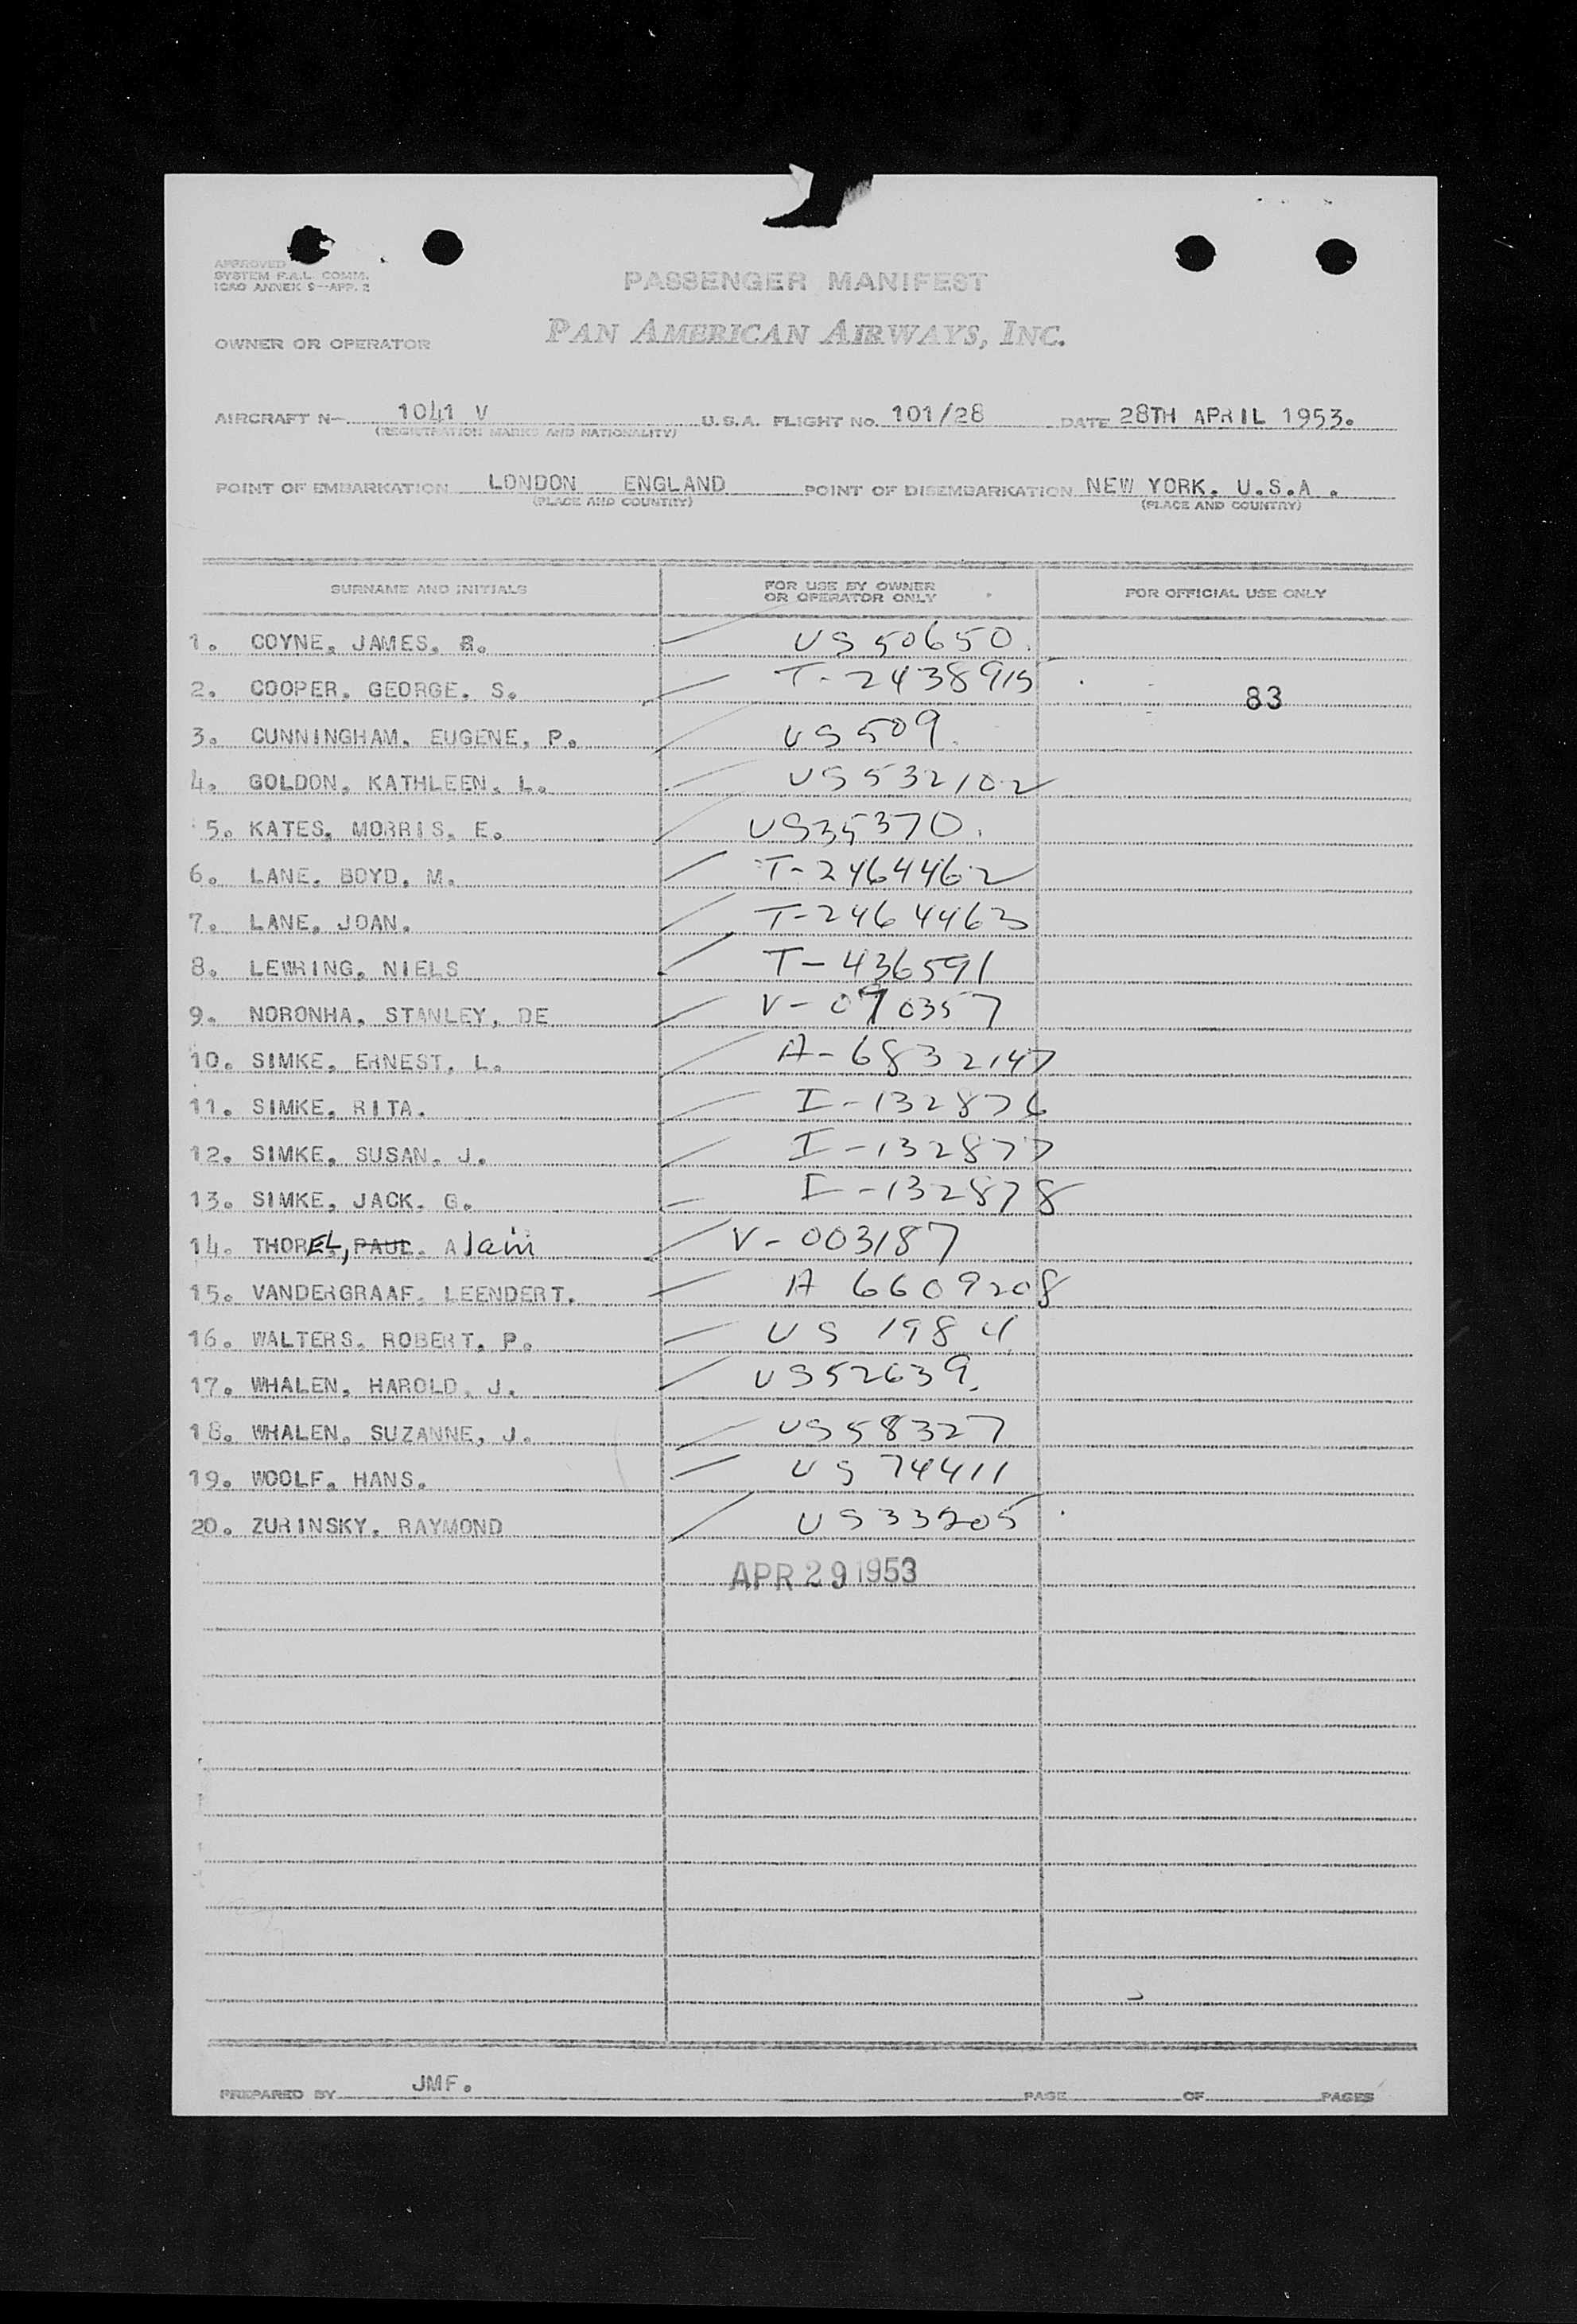 APPROVED
SYSTEM F.A.L. COMM.
ICAO ANNEX 9—APP. 2
PASSENGER MANIFEST
OWNER OR OPERATOR PAN AMERICAN AIRWAYS, INC.
AIRCRAFT N- 1041 V U.S.A. FLIGHT NO. 101/28 DATE 28TH APRIL 1953.
(REGISTRATION MARKS AND NATIONALITY)
POINT OF EMBARKATION LONDON ENGLAND POINT OF DISEMBARKATION NEW YORK. U.S.A .
(PLACE AND COUNTRY) (PLACE AND COUNTRY)
SURNAME AND INITIALS FOR USE BY OWNER OR OPERATOR ONLY FOR OFFICIAL USE ONLY
1. COYNE, JAMES. R. US 50650.
2. COOPER. GEORGE. S. T-2438915 83
3. CUNNINGHAM. EUGENE, P. US 509.
4. GOLDON, KATHLEEN. L. US 532102
5. KATES, MORRIS. E. US35370.
6. LANE. BOYD. M. T-2464462
7. LANE, JOAN. T-2464463
8. LEWRING, NIELS T-436591
9. NORONHA, STANLEY, DE V-090357
10. SIMKE, ERNEST, L. A-6832147
11. SIMKE, RITA. I-132876
12. SIMKE, SUSAN. J. I-132877
13. SIMKE, JACK. G. I-132878
14. THOREL, PAUL. Alain V-003187
15. VANDERGRAAF. LEENDERT. A 6609208
16. WALTERS. ROBERT. P. US 1984
17. WHALEN, HAROLD. J. US52639.
18. WHALEN. SUZANNE, J. US58327
19. WOOLF, HANS. US 74411
20. ZURINSKY, RAYMOND US33205
APR 29 1953
PREPARED BY JMF. PAGE OF PAGES